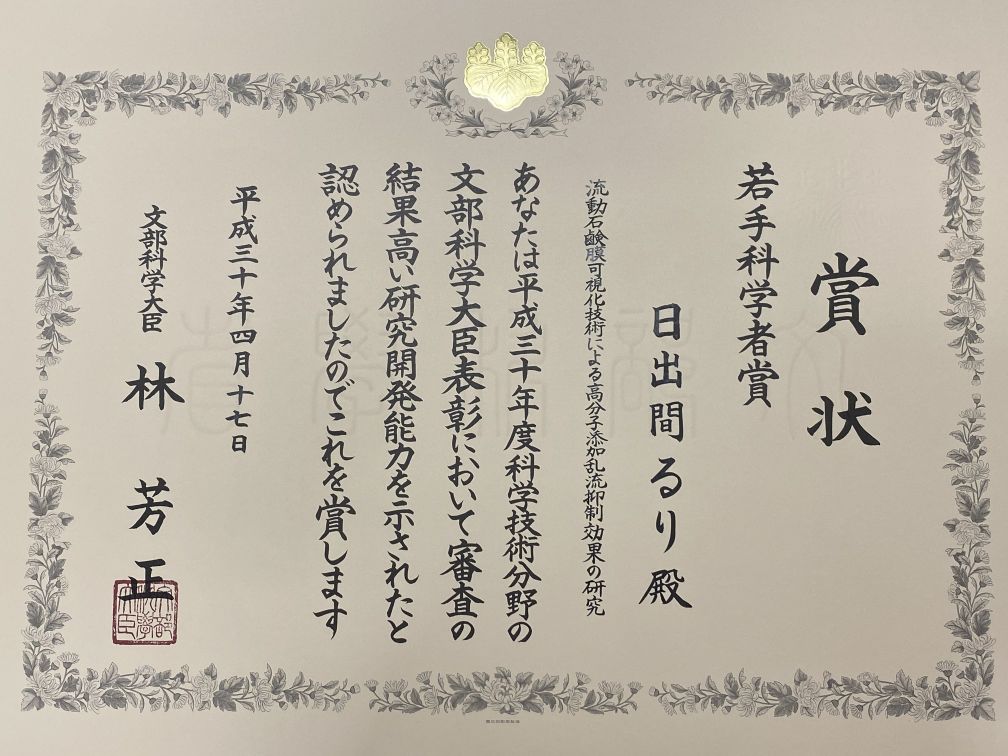 賞状
若手科学者賞
日出間るり殿
流動石鹸膜可視化技術による高分子添加乱流抑制効果の研究
あなたは平成三十年度科学技術分野の
文部科学大臣表彰において審査の
結果高い研究開発能力を示されたと
認められましたのでこれを賞します
平成三十年四月十七日
文部科学大臣 林芳正